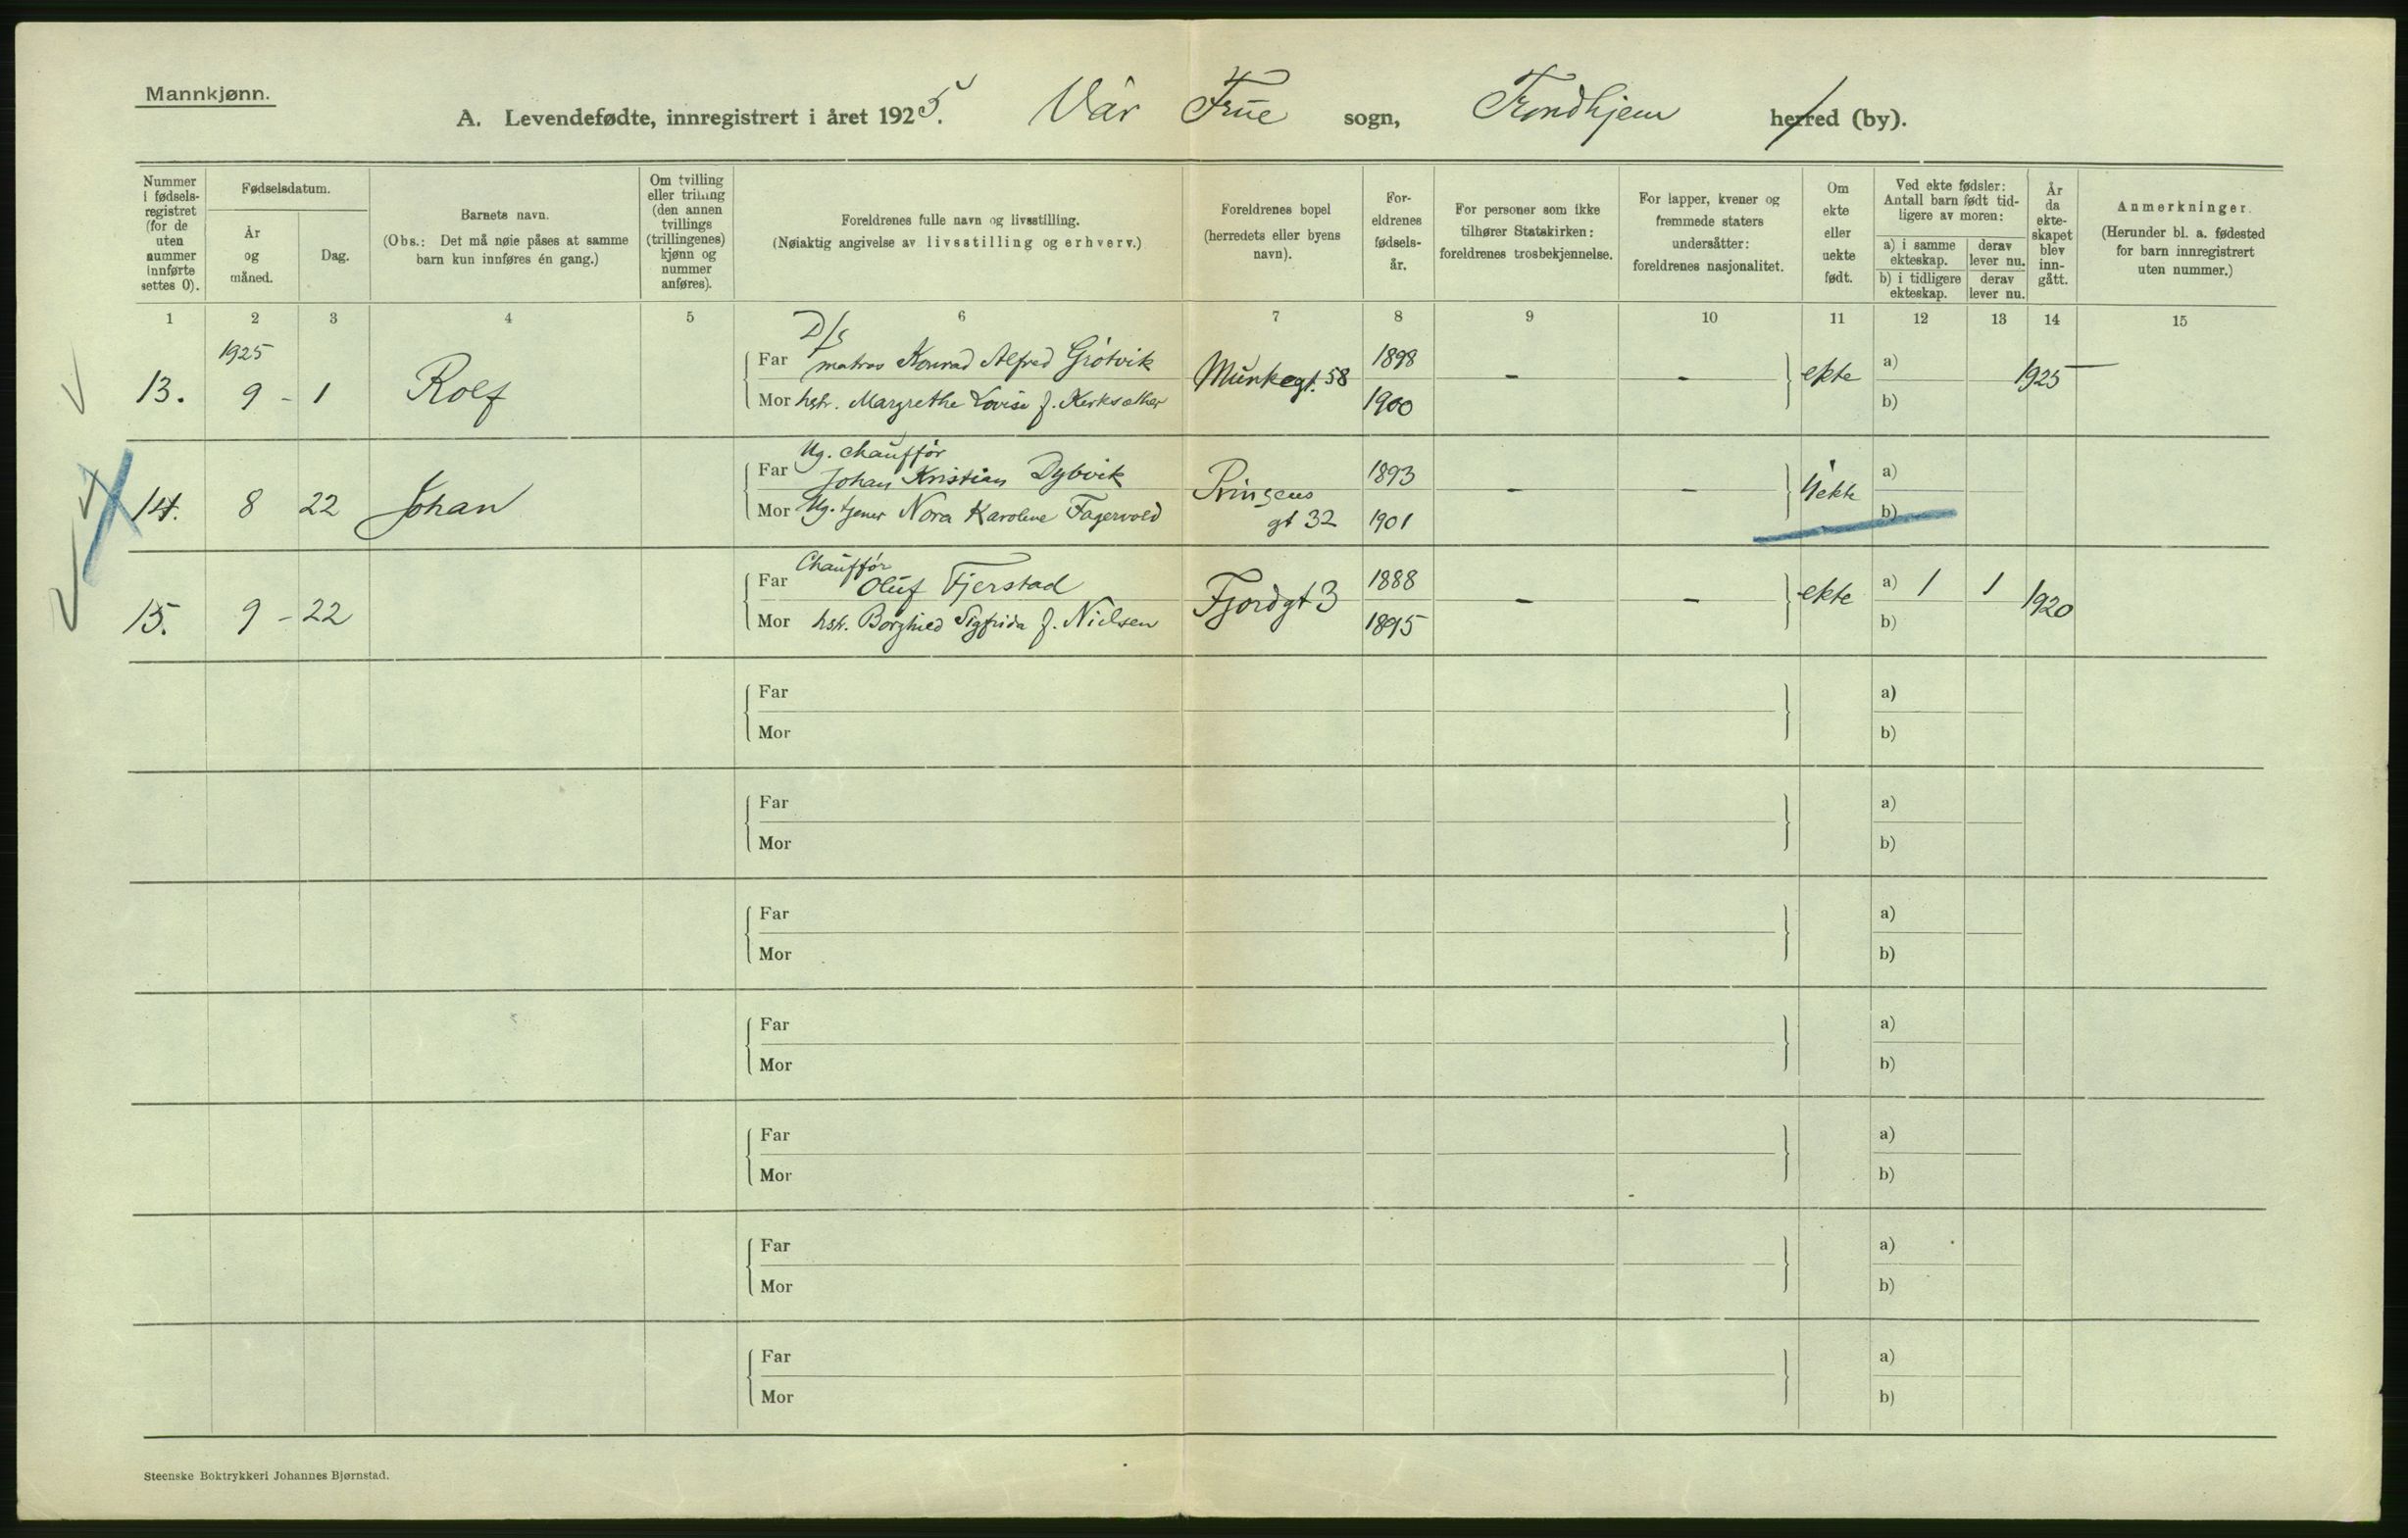 Mannkjønn.
A. Levendefødte, innregistrert i året 1925. Vår Frue sogn, Trondhjem herred (by).
Nummer i fødsels-registret (for de uten nummer innførte settes 0).
Fødselsdatum.
År og måned.
Dag.
Barnets navn.
(Obs.: Det må nøie påses at samme barn kun innføres én gang.)
Om tvilling eller trilling (den annen tvillings (trillingenes) kjønn og nummer anføres).
Foreldrenes fulle navn og livsstilling.
(Nøiaktig angivelse av livsstilling og erhverv.)
Foreldrenes bopel (herredets eller byens navn).
For-eldrenes fødsels-år.
For personer som ikke tilhører Statskirken: foreldrenes trosbekjennelse.
For lapper, kvener og fremmede staters undersåtter: foreldrenes nasjonalitet.
Om ekte eller uekte født.
Ved ekte fødsler: Antall barn født tid-ligere av moren:
a) i samme ekteskap.
derav lever nu.
b) i tidligere ekteskap.
derav lever nu.
År da ekte-skapet blev inn-gått.
Anmerkninger.
(Herunder bl. a. fødested for barn innregistrert uten nummer.)
1 2 3 4 5 6 7 8 9 10 11 12 13 14 15
1925
13. 9 - 1 Rolf
D/s
Far matros Konrad Alfred Grøtvik
Mor hstr. Margrethe Lovise f. Kirksæther
Munkegt. 58
1898
1900
- -
ekte
a)
b)
1925
14. 8 22 Johan
Ug. chauffør
Far Johan Kristian Dybvik
Mor Ug. tjener Nora Karoline Fagervold
Prinsens
gt 32
1893
1901
- -
Uekte
a)
b)
15. 9 - 22
Chauffør
Far Oluf Fjerstad
Mor hstr. Borghild Sigfrida f. Nielsen
Fjordgt 3
1888
1895
- -
ekte
a) 1 1
b)
1920
Far a)
Mor b)
Far a)
Mor b)
Far a)
Mor b)
Far a)
Mor b)
Far a)
Mor b)
Far a)
Mor b)
Far a)
Mor b)
Steenske Boktrykkeri Johannes Bjørnstad.